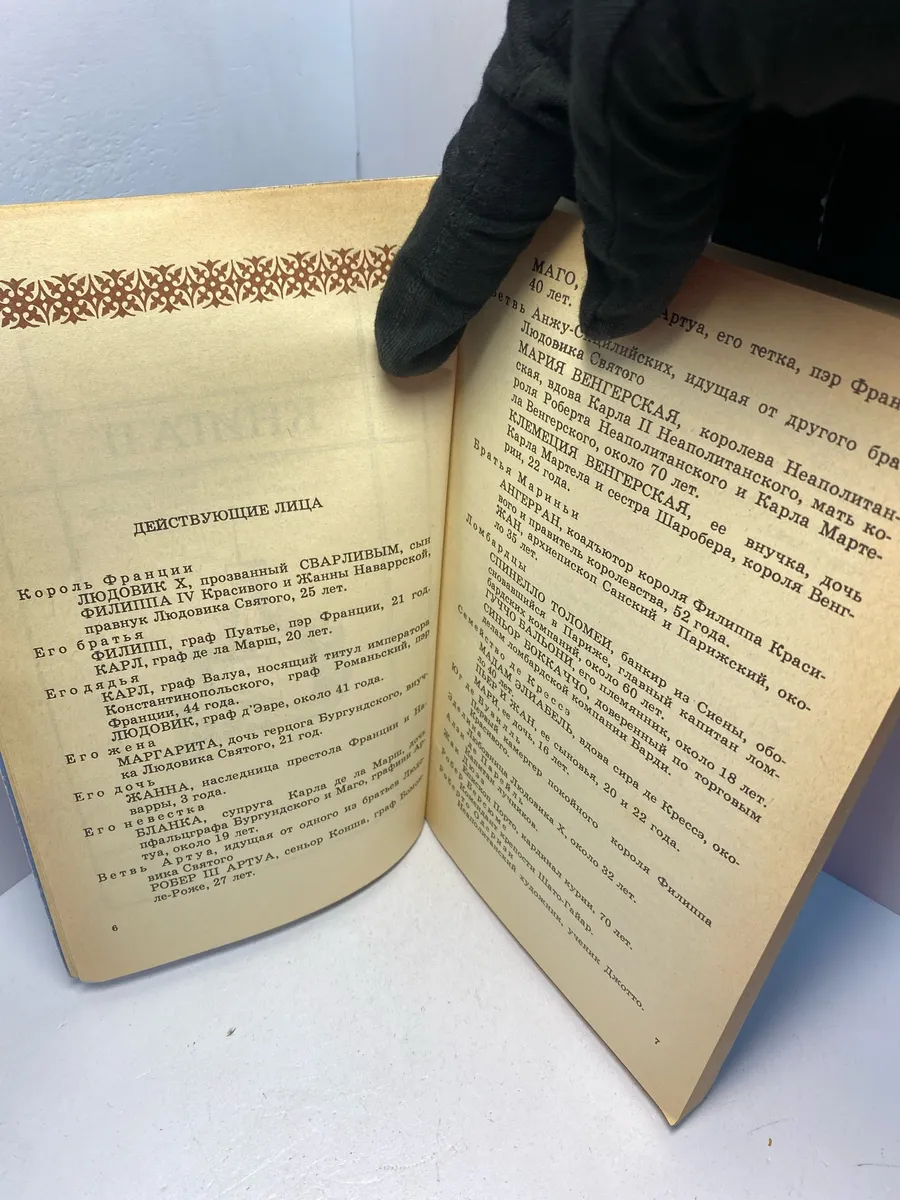 ДЕЙСТВУЮЩИЕ ЛИЦА
Король Франции
ЛЮДОВИК X, прозванный СВАРЛИВЫМ, сын
ФИЛИППА IV Красивого и Жанны Наваррской,
правнук Людовика Святого, 25 лет.
Его братья
ФИЛИПП, граф Пуатье, пэр Франции, 21 год.
КАРЛ, граф де ла Марш, 20 лет.
Его дядья
КАРЛ, граф Валуа, носящий титул императора
Константинопольского, граф Романьский, пэр
Франции, 44 года.
ЛЮДОВИК, граф д'Эвре, около 41 года.
Его жена
МАРГАРИТА, дочь герцога Бургундского, внуч-
ка Людовика Святого, 21 год.
Его дочь
ЖАННА, наследница престола Франции и На-
варры, 3 года.
Его невестка
БЛАНКА, супруга Карла де ла Марш, дочь
пфальцграфа Бургундского и Маго, графини Ар-
туа, около 19 лет.
Ветвь Артуа, идущая от одного из братьев Людо-
вика Святого
РОБЕР III АРТУА, сеньор Конша, граф Бомон-
ле-Роже, 27 лет.
6
МАГО, Артуа, его тетка, пэр Фран
40 лет.
Ветвь Анжу-Сицилийских, идущая от другого бра
Людовика Святого
МАРИЯ ВЕНГЕРСКАЯ, королева Неаполитан-
ская, вдова Карла II Неаполитанского, мать ко-
роля Роберта Неаполитанского и Карла Марте-
ла Венгерского, около 70 лет.
КЛЕМЕЦИЯ ВЕНГЕРСКАЯ, ее внучка, дочь
Карла Мартела и сестра Шаробера, короля Венг-
рии, 22 года.
Братья Мариньи
АНГЕРРАН, коадъютор короля Филиппа Краси-
вого и правитель королевства, 52 года.
ЖАН, архиепископ Санский и Парижский, око-
ло 35 лет.
Ломбардцы
СПИНЕЛЛО ТОЛОМЕИ, банкир из Сиены, обо-
сновавшийся в Париже, главный капитан лом-
бардских компаний, около 60 лет.
ГУЧЧО БАЛЬОНИ, его племянник, около 18 лет.
СИНЬОР БОККАЧЧО, доверенный по торговым
делам ломбардской компании Барди.
Семейство де Крессэ
МАДАМ ЭЛИАБЕЛЬ, вдова сира де Крессэ, око-
ло 40 лет.
ПЬЕР и ЖАН, ее сыновья, 20 и 22 года.
МАРИ, ее дочь, 16 лет.
Юг де Бувилль
Первый камергер покойного короля Филиппа
Людовика X, около 32 лет.
лучников.
Порто, кардинал курии, 70 лет.
крепости Шато-Гайар.
художник, ученик Джотто.
7